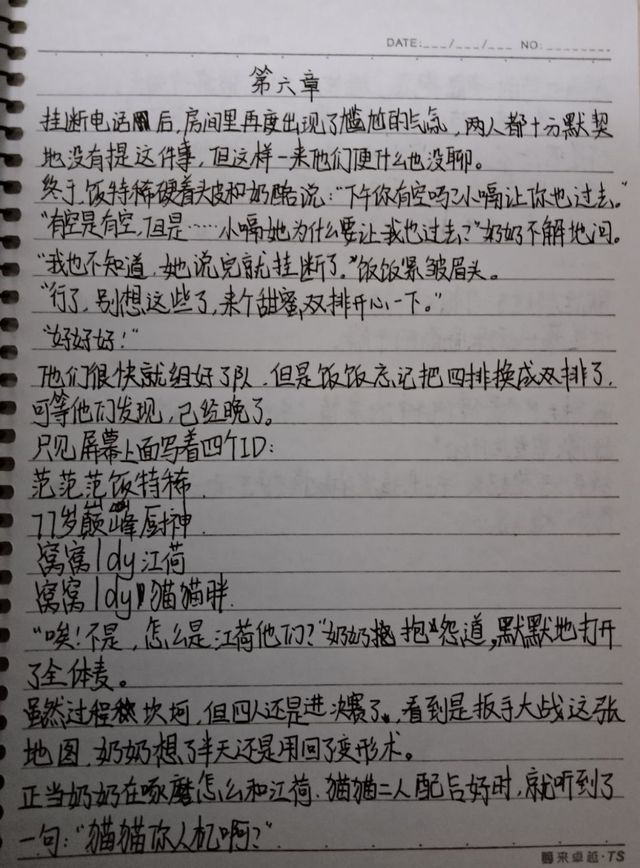 DATE:___/___/___ NO:________
第六章
挂断电话后,房间里再度出现了尴尬的气氛,两人都十分默契
地没有提这件事,但这样一来他们便什么也没聊。
终于,饭特稀硬着头皮和奶酪说:“下午你有空吗?小嗝让你也过去。”
“有空是有空,但是……小嗝她为什么要让我也过去?”奶奶不解地问。
“我也不知道,她说完就挂断了。”饭饭紧皱眉头。
“行了,别想这些了,来个甜蜜双排开心一下。”
“好好好!”
他们很快就组好了队,但是饭饭忘记把四排换成双排了,
可等他们发现,已经晚了。
只见屏幕上面写着四个ID:
范范范饭特稀.
77岁巅峰厨神.
窝窝ldy江荷
窝窝ldy猫猫胖.
“唉!不是,怎么是江荷他们?”奶奶抱怨道,默默地打开
了全体麦。
虽然过程很坎坷,但四人还是进决赛了,看到是扳手大战这张
地图,奶奶想了半天还是用回了变形术。
正当奶奶在琢磨怎么和江荷、猫猫二人配合好时,就听到了
一句:“猫猫你人机啊?”
来卓越·TS